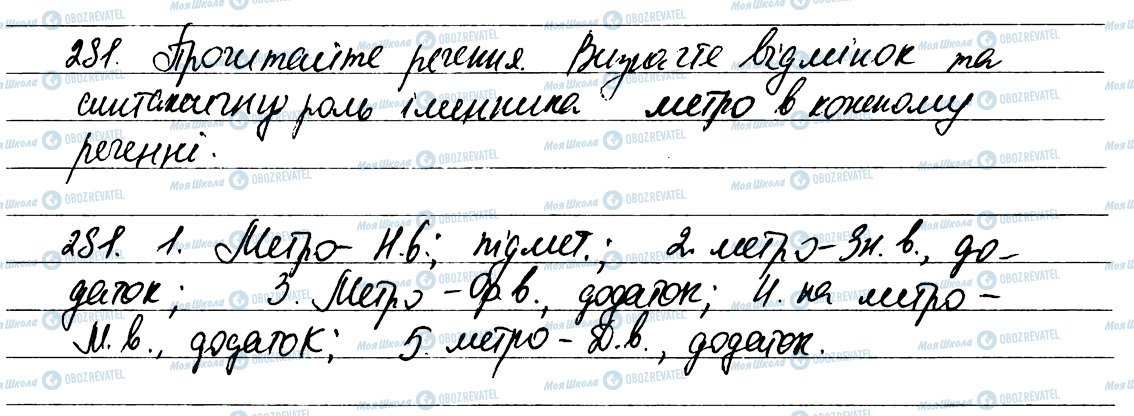 281. Прочитайте речення. Визначте відмінок та
синтаксичну роль іменника метро в кожному
реченні.
281. 1. Метро - Н.в.; підмет.; 2. метро - Зн. в., до-
даток; 3. Метро - Ор. в., додаток; 4. на метро -
М. в., додаток; 5. метро - Д. в., додаток.